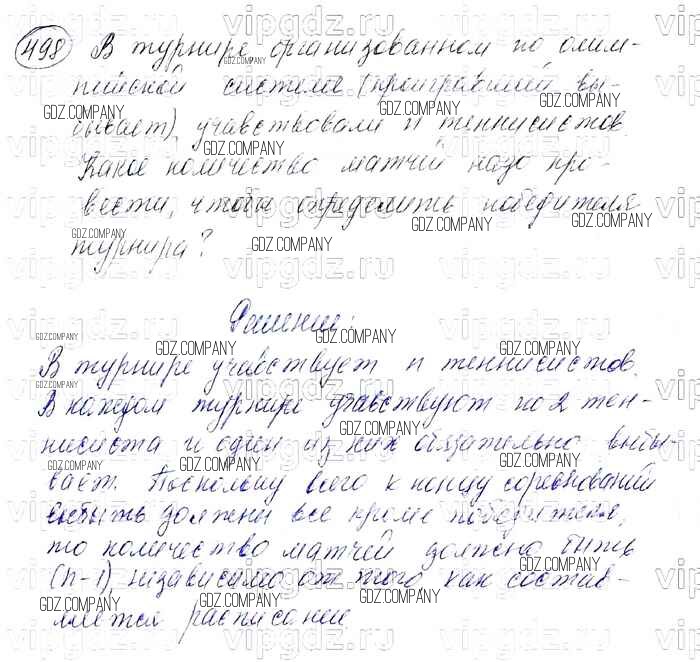 498 В турнире организованном по олим-
пийской системе (проигравший вы-
бывает), учавствовали n теннисистов
Какое количество матчей надо про-
вести, чтобы определить победителя
турнира?
Решение:
В турнире учавствует n теннисистов.
В каждом турнире учавствуют по 2 тен-
нисиста и один из них обязательно выбы-
вает. Поскольку всего к концу соревнований
выбыть должны все кроме победителя,
то количество матчей должно быть
(n-1), независимо от того как состав-
ляется расписание